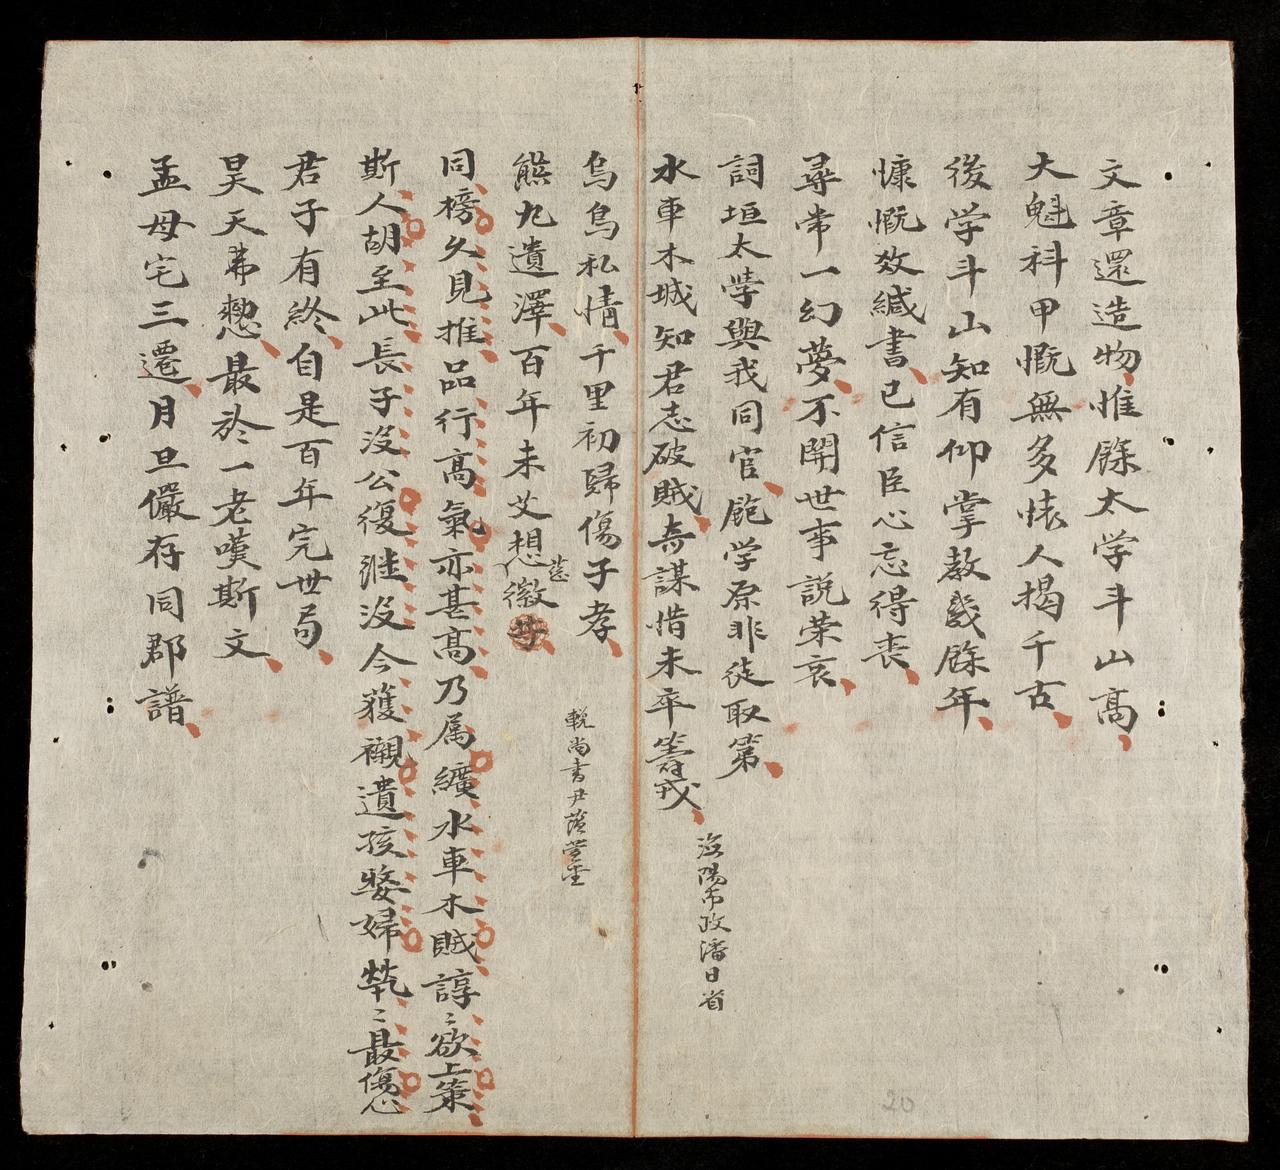 文章還造物惟餘太学斗山高
大魁科甲慨無多悵人揭千古
後学斗山知有仰掌教畿餘年
慷慨效緘書已信臣心忘得丧
尋常一幻夢不開世事説荣哀
詞垣太學與我同官飽学原非徒取第
水車木城知君志破賊奇謀惜未卒籌戎
沒陽布政潘日省
烏烏私情千里初歸傷子孝
熊九遺澤百年未艾想徽
慈
輓尚書尹蔭堂
同榜久見推品行高氣亦甚高乃属纊水車木賊諄〻欲上策
斯人胡至此長子沒公復継沒今獲櫬遺孩嫠婦煢〻最傷心
君子有終自是百年完世局
昊天弗憗最於一老嘆斯文
孟母宅三遷月旦儼存同郡譜
20